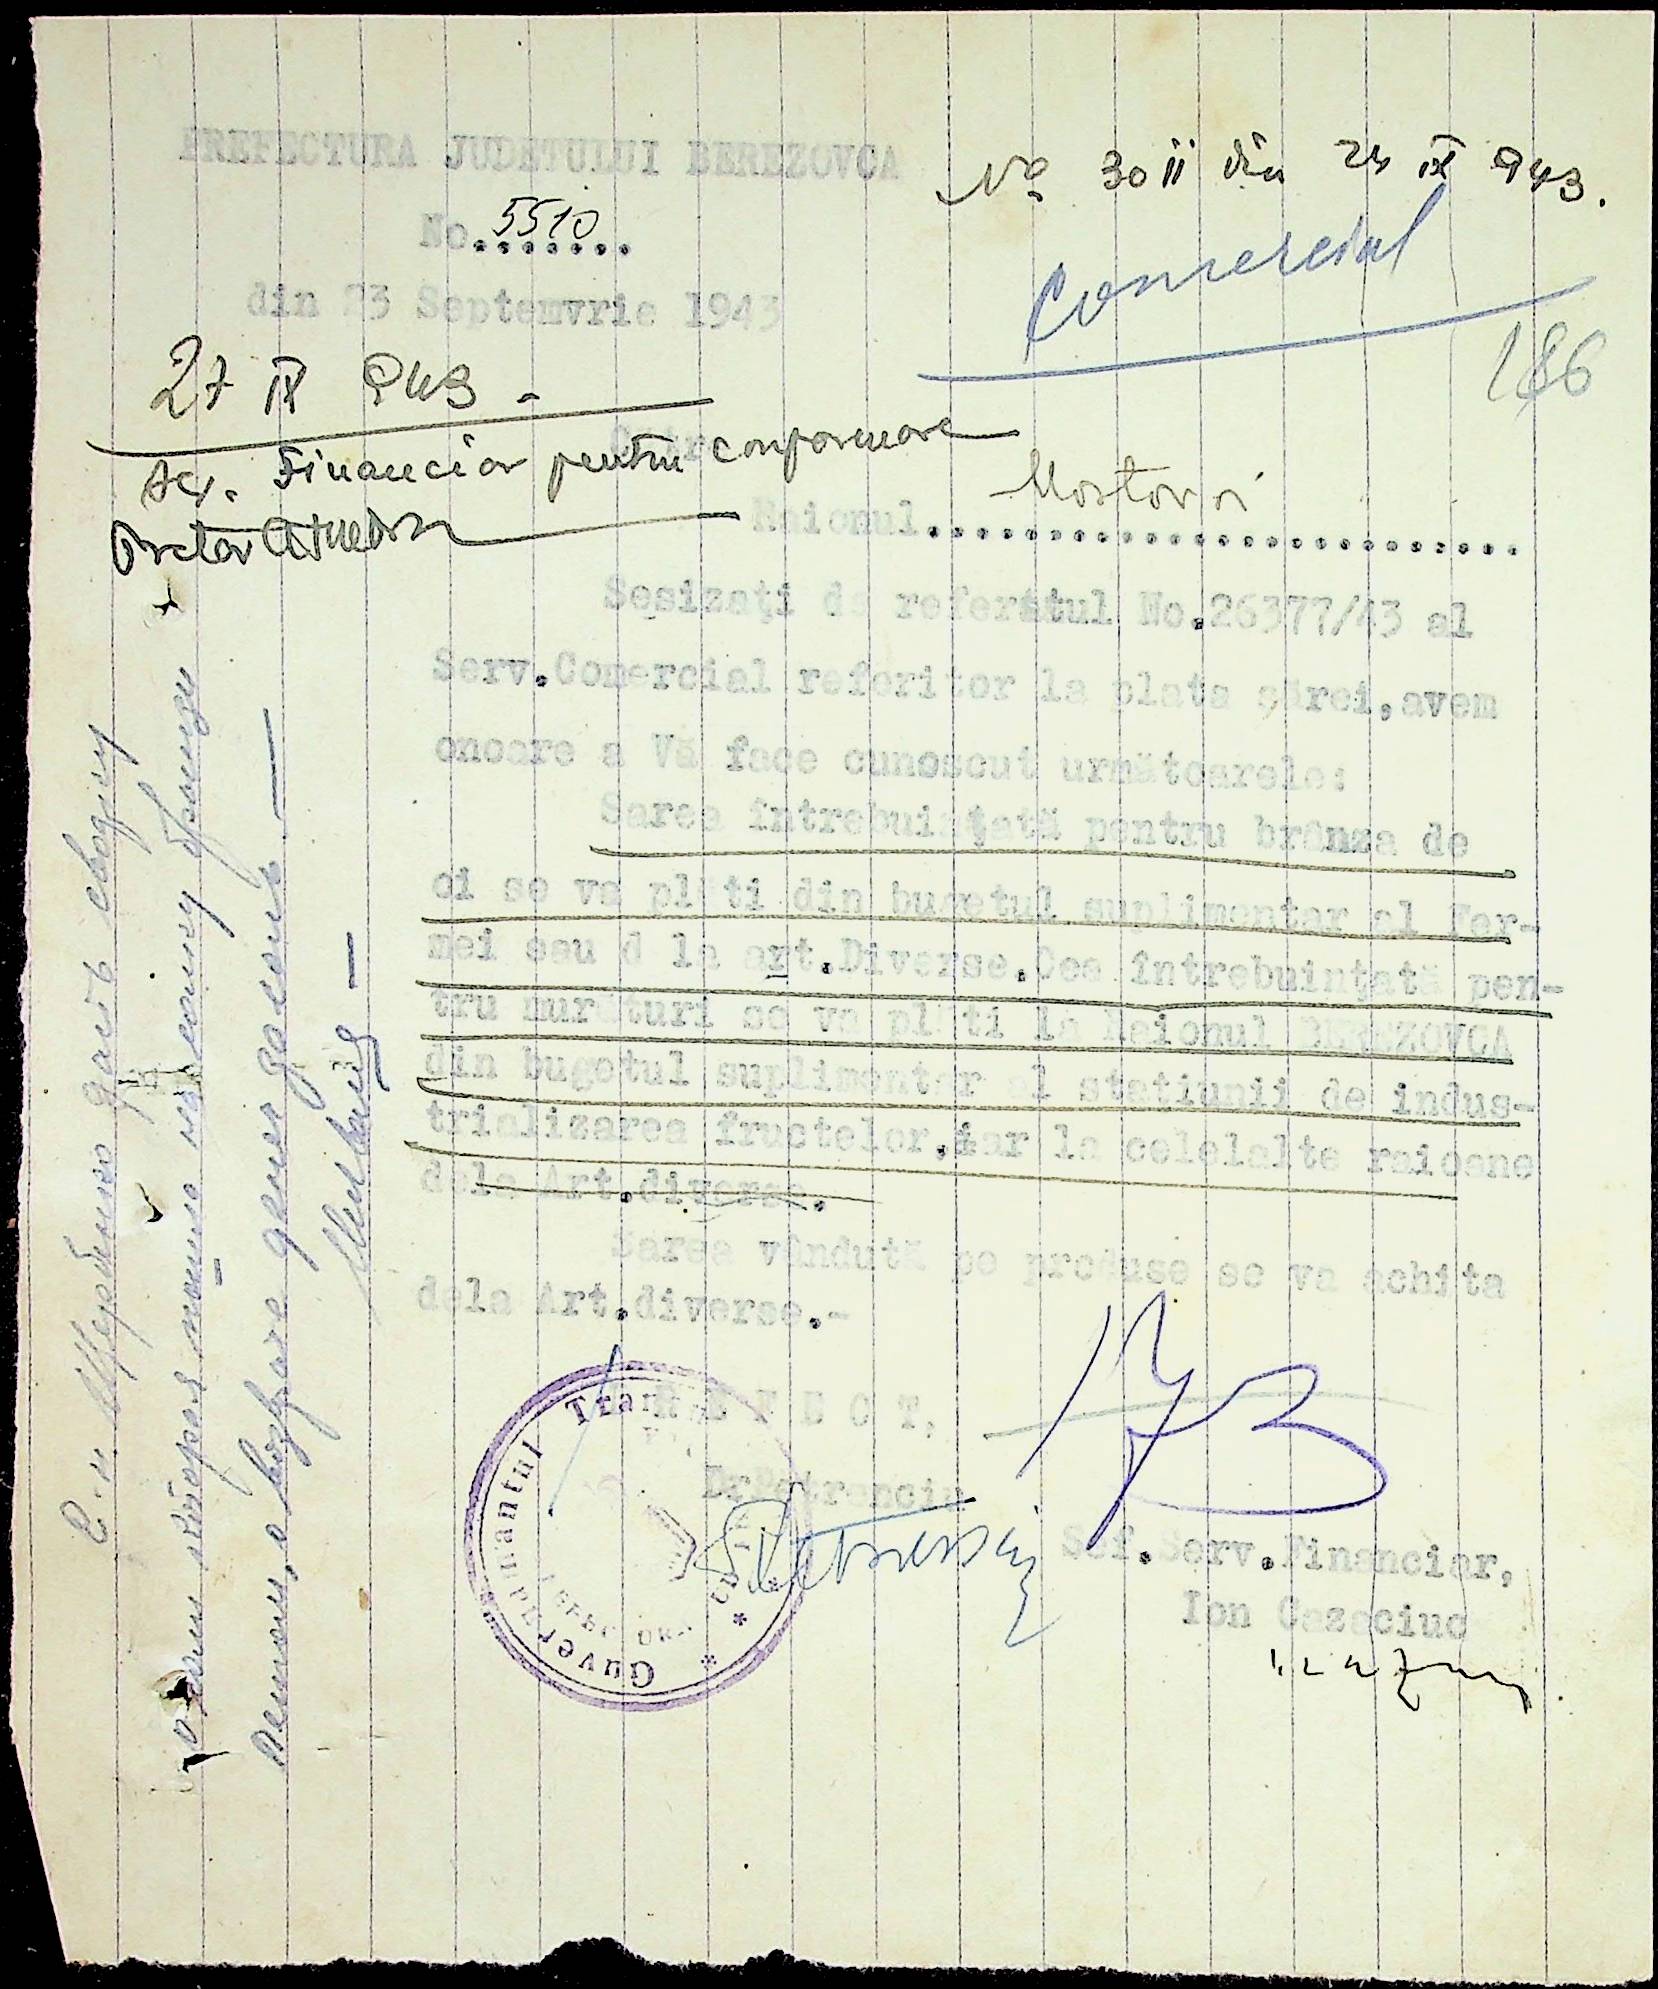 PREFECTURA JUDEŢULUI BEREZOVCA
No. 5510
din 23 Septemvrie 1943
No 3011 din 24 IX 943.
Comercial
186
27 IX 943 -
Financiar pentru conformare
Pretor
Către
Raionul Mostovoi
Sesizaţi de referatul No.26377/43 al
Serv.Comercial referitor la plata sărei,avem
onoare a Vă face cunoscut următoarele:
Sarea întrebuinţată pentru brânza de
oi se va plăti din bugetul suplimentar al Fer-
mei sau d la art.Diverse.Cea întrebuinţată pen-
tru murături se va plăti la Raionul BEREZOVCA
din bugetul suplimentar al staţiunii de indus-
trializarea fructelor,iar la celelalte raioane
dela Art.diverse.
Sarea vândută pe produse se va achita
dela Art.diverse.-
PREFECT,
Dr.Petrenciu
Sef.Serv.Financiar,
Ion Cazaciuc
Guvernamantul Tran
дать сводку
соли которая пошла на брынзу